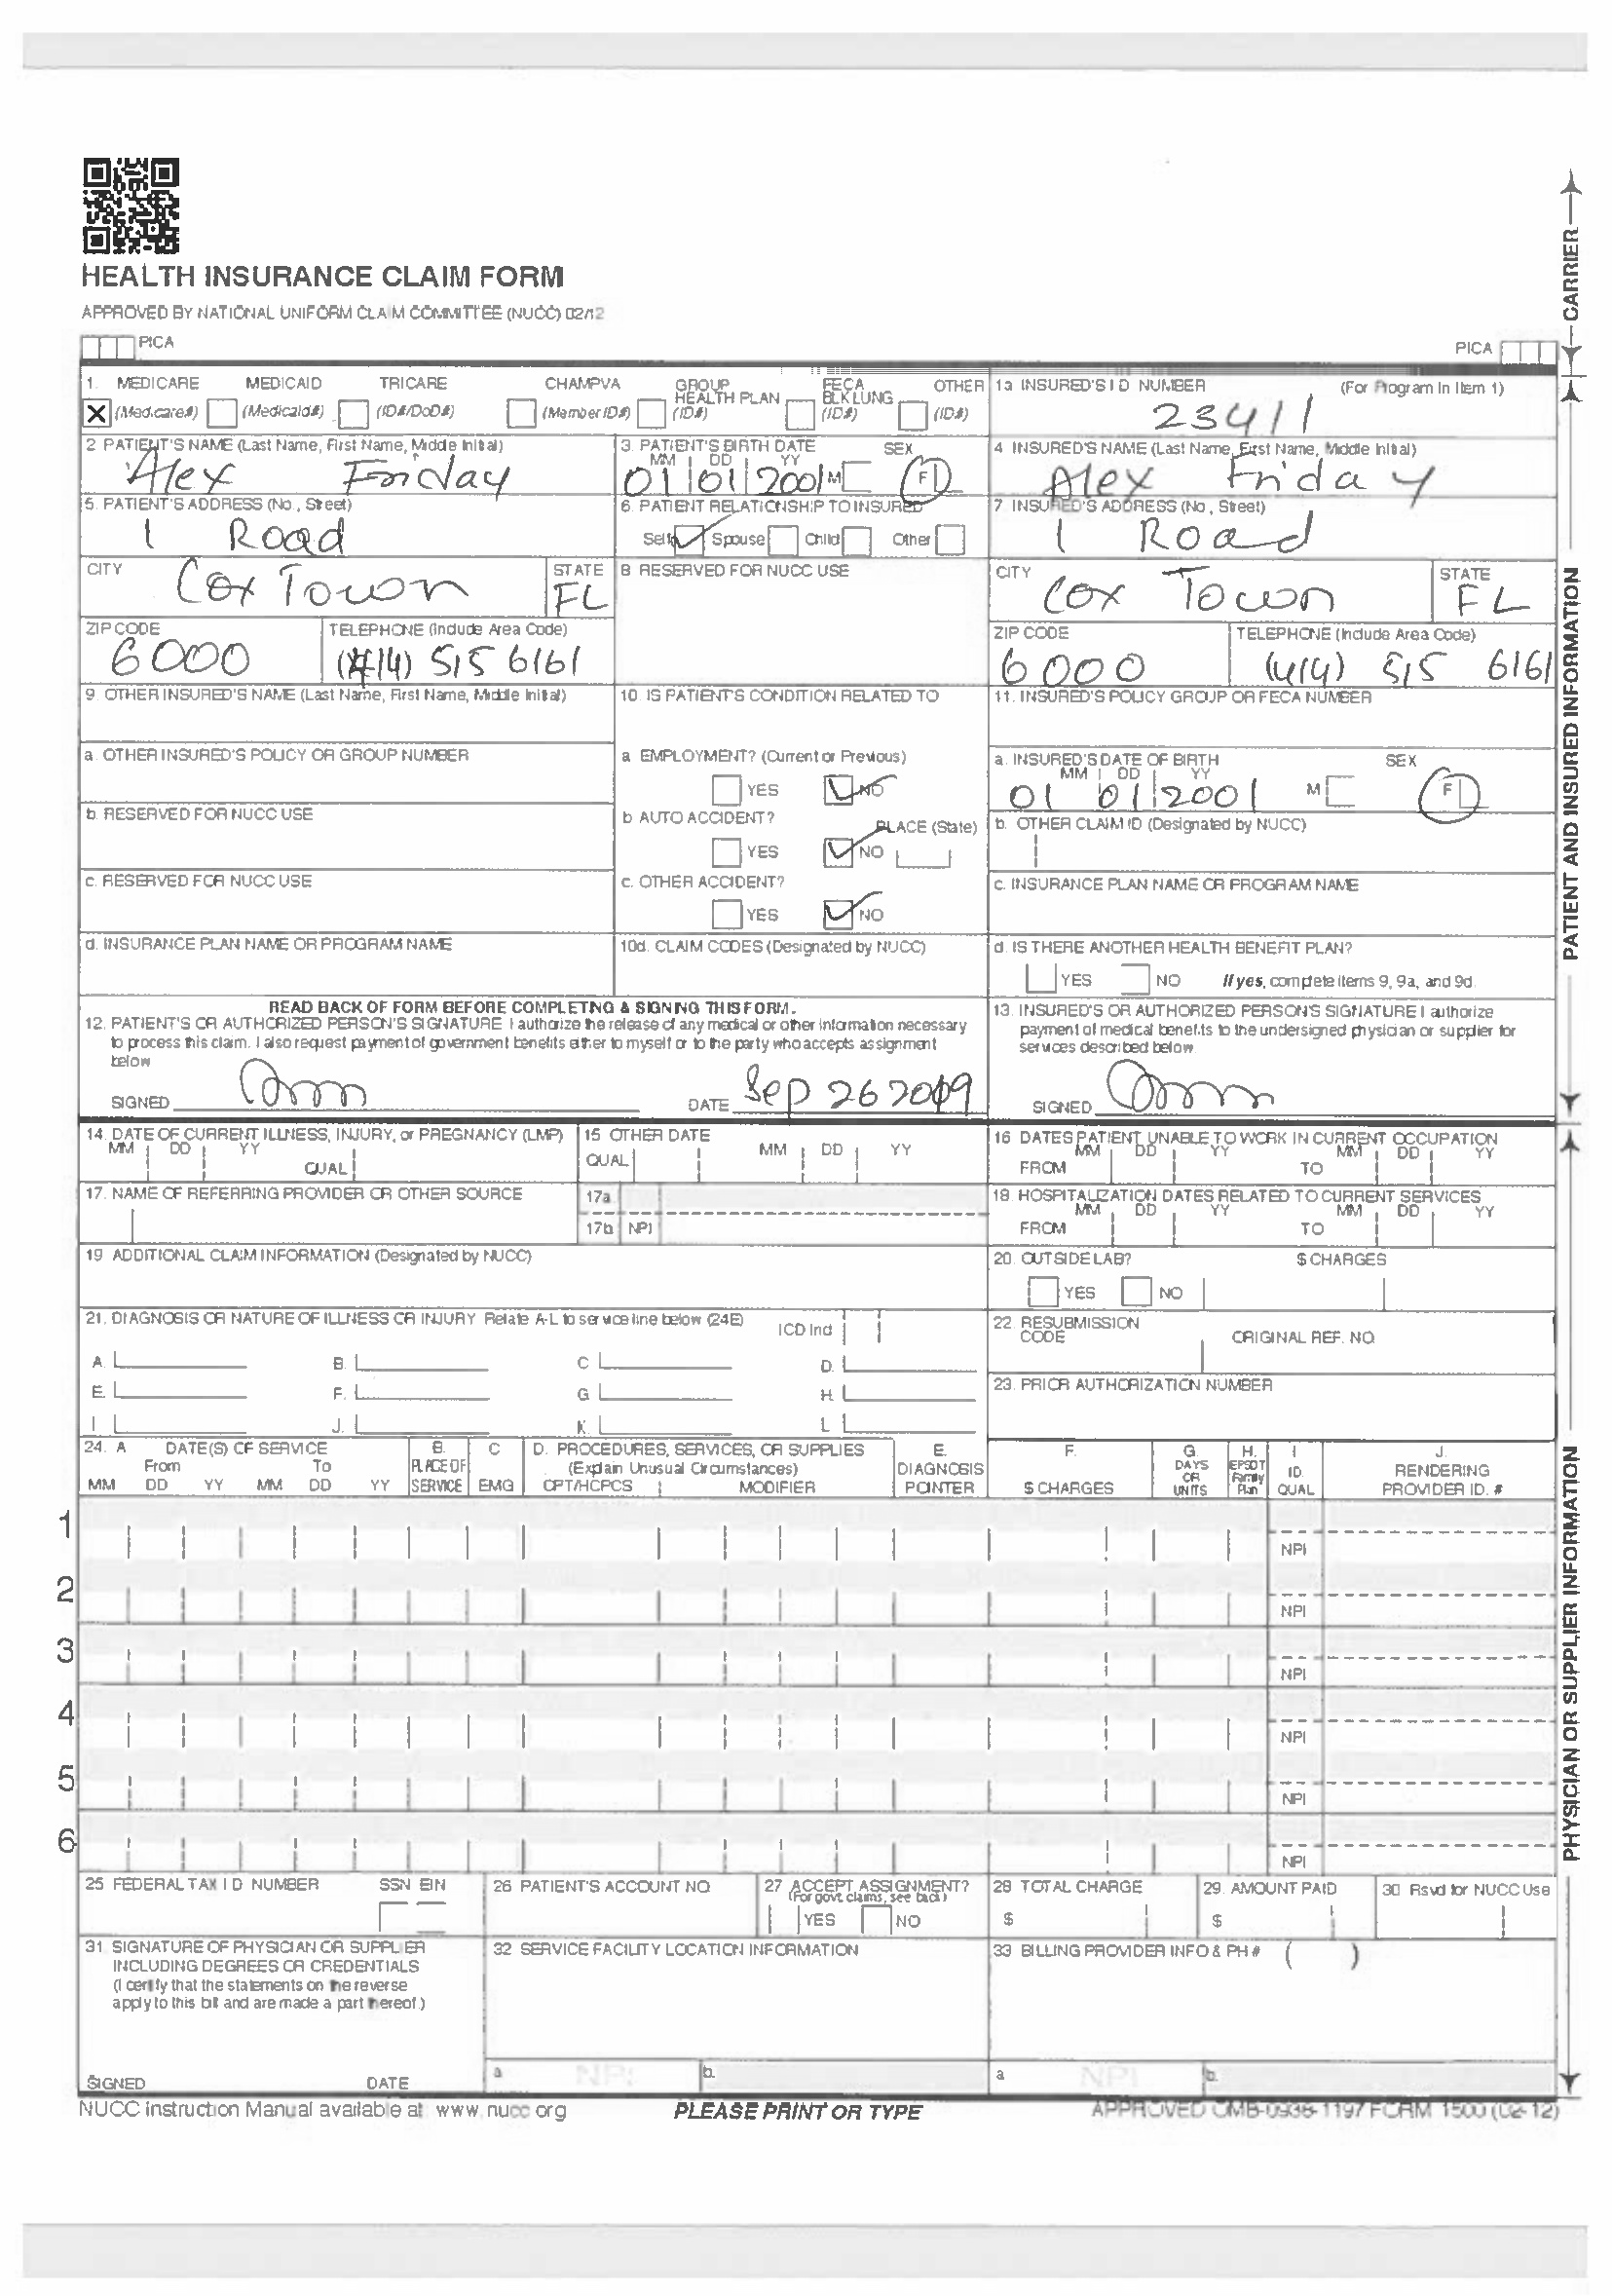 HEALTH INSURANCE CLAIM FORM
APPROVED BY NATIONAL UNIFORM CLAIM COMMITTEE (NUCC) 02/12
PICA
PICA
CARRIER
1. MEDICARE MEDICAID TRICARE CHAMPVA GROUP HEALTH PLAN FECA BLK LUNG OTHER
X (Medicare#) (Medicaid#) (ID#/DoD#) (Member ID#) (ID#) (ID#) (ID#)
1a INSURED'S I D NUMBER (For Program In Item 1)
23411
2 PATIENT'S NAME (Last Name, First Name, Middle Initial)
Alex Friday
3. PATIENT'S BIRTH DATE SEX
MM DD YY
01 01 2001 M F
4 INSURED'S NAME (Last Name, First Name, Middle Initial)
Alex Friday
5. PATIENT'S ADDRESS (No., Street)
1 Road
6. PATIENT RELATIONSHIP TO INSURED
Self Spouse Child Other
7. INSURED'S ADDRESS (No., Street)
1 Road
CITY STATE
Cox Town FL
8 RESERVED FOR NUCC USE
CITY STATE
Cox Town FL
ZIP CODE TELEPHONE (Include Area Code)
6000 (414) 515 6161
ZIP CODE TELEPHONE (Include Area Code)
6000 (414) 515 6161
9. OTHER INSURED'S NAME (Last Name, First Name, Middle Initial)
10. IS PATIENT'S CONDITION RELATED TO
11. INSURED'S POLICY GROUP OR FECA NUMBER
a. OTHER INSURED'S POLICY OR GROUP NUMBER
a EMPLOYMENT? (Current or Previous)
YES NO
a. INSURED'S DATE OF BIRTH SEX
MM DD YY
01 01 2001 M F
b. RESERVED FOR NUCC USE
b AUTO ACCIDENT? PLACE (State)
YES NO
b. OTHER CLAIM ID (Designated by NUCC)
c. RESERVED FOR NUCC USE
c. OTHER ACCIDENT?
YES NO
c. INSURANCE PLAN NAME OR PROGRAM NAME
d. INSURANCE PLAN NAME OR PROGRAM NAME
10d. CLAIM CODES (Designated by NUCC)
d. IS THERE ANOTHER HEALTH BENEFIT PLAN?
YES NO If yes, complete items 9, 9a, and 9d.
PATIENT AND INSURED INFORMATION
READ BACK OF FORM BEFORE COMPLETING & SIGNING THIS FORM.
12. PATIENT'S OR AUTHORIZED PERSON'S SIGNATURE I authorize the release of any medical or other information necessary
to process this claim. I also request payment of government benefits either to myself or to the party who accepts assignment
below
SIGNED DATE Sep 26 2019
13. INSURED'S OR AUTHORIZED PERSON'S SIGNATURE I authorize
payment of medical benefits to the undersigned physician or supplier for
services described below.
SIGNED
14. DATE OF CURRENT ILLNESS, INJURY, or PREGNANCY (LMP)
MM DD YY QUAL
15 OTHER DATE
QUAL MM DD YY
16 DATES PATIENT UNABLE TO WORK IN CURRENT OCCUPATION
MM DD YY MM DD YY
FROM TO
17. NAME OF REFERRING PROVIDER OR OTHER SOURCE
17a
17b NPI
18. HOSPITALIZATION DATES RELATED TO CURRENT SERVICES
MM DD YY MM DD YY
FROM TO
19 ADDITIONAL CLAIM INFORMATION (Designated by NUCC)
20. OUTSIDE LAB? $ CHARGES
YES NO
21. DIAGNOSIS OR NATURE OF ILLNESS OR INJURY Relate A-L to service line below (24E) ICD Ind
A. B. C D.
E. F. G H.
I J. K. L
22. RESUBMISSION
CODE ORIGINAL REF. NO.
23. PRIOR AUTHORIZATION NUMBER
24. A DATE(S) OF SERVICE B. C D. PROCEDURES, SERVICES, OR SUPPLIES E. F. G. H. I J.
From To PLACE OF (Explain Unusual Circumstances) DIAGNOSIS DAYS OR UNITS EPSDT Family Plan ID. RENDERING
MM DD YY MM DD YY SERVICE EMG CPT/HCPCS MODIFIER POINTER $ CHARGES QUAL PROVIDER ID. #
1
NPI
2
NPI
3
NPI
4
NPI
5
NPI
6
NPI
PHYSICIAN OR SUPPLIER INFORMATION
25 FEDERAL TAX I D NUMBER SSN EIN
26 PATIENT'S ACCOUNT NO.
27 ACCEPT ASSIGNMENT?
(For govt. claims, see back)
YES NO
28 TOTAL CHARGE
$
29. AMOUNT PAID
$
30 Rsvd for NUCC Use
31. SIGNATURE OF PHYSICIAN OR SUPPLIER
INCLUDING DEGREES OR CREDENTIALS
(I certify that the statements on the reverse
apply to this bill and are made a part thereof.)
SIGNED DATE
32 SERVICE FACILITY LOCATION INFORMATION
a NPI b.
33 BILLING PROVIDER INFO & PH # ( )
a NPI b.
NUCC Instruction Manual available at www.nucc.org
PLEASE PRINT OR TYPE
APPROVED OMB-0938-1197 FORM 1500 (02-12)